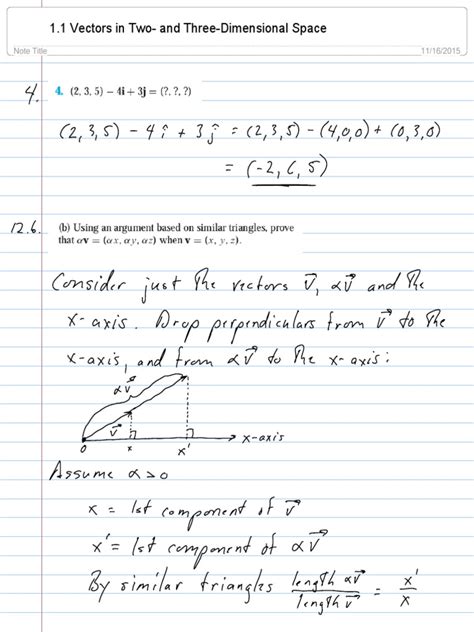 1.1 Vectors in Two- and Three-Dimensional Space
Note Title
11/16/2015
4. 4. (2, 3, 5) − 4i + 3j = (?, ?, ?)
(2, 3, 5) − 4î + 3ĵ = (2, 3, 5) − (4, 0, 0) + (0, 3, 0)
= (-2, 6, 5)
12.6. (b) Using an argument based on similar triangles, prove
that αv = (αx, αy, αz) when v = (x, y, z).
Consider just the vectors v⃗, αv⃗ and the
x-axis. Drop perpendiculars from v⃗ to the
x-axis, and from αv⃗ to the x-axis:
αv⃗
v⃗
x-axis
0 x x'
Assume α>0
x = 1st component of v⃗
x' = 1st component of αv⃗
By similar triangles length αv⃗ / length v⃗ = x' / x